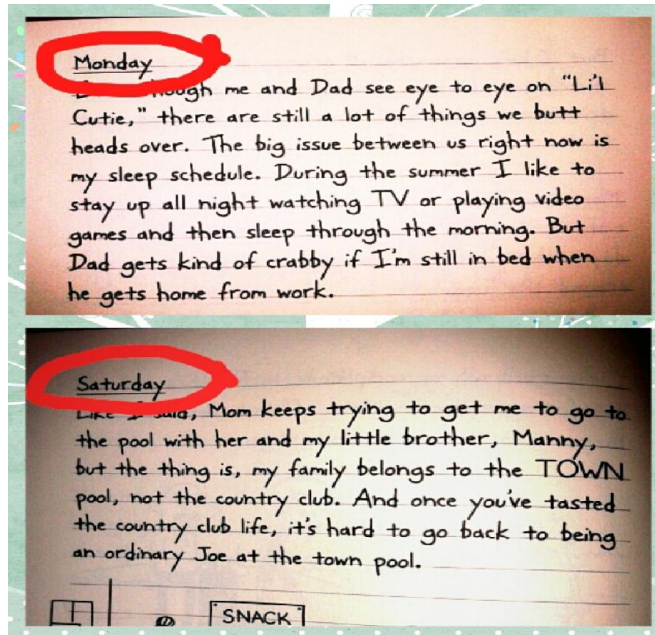 Monday
though me and Dad see eye to eye on "Li'l
Cutie," there are still a lot of things we butt
heads over. The big issue between us right now is
my sleep schedule. During the summer I like to
stay up all night watching TV or playing video
games and then sleep through the morning. But
Dad gets kind of crabby if I'm still in bed when
he gets home from work.
Saturday
Like I said, Mom keeps trying to get me to go to
the pool with her and my little brother, Manny,
but the thing is, my family belongs to the TOWN
pool, not the country club. And once you've tasted
the country club life, it's hard to go back to being
an ordinary Joe at the town pool.
SNACK